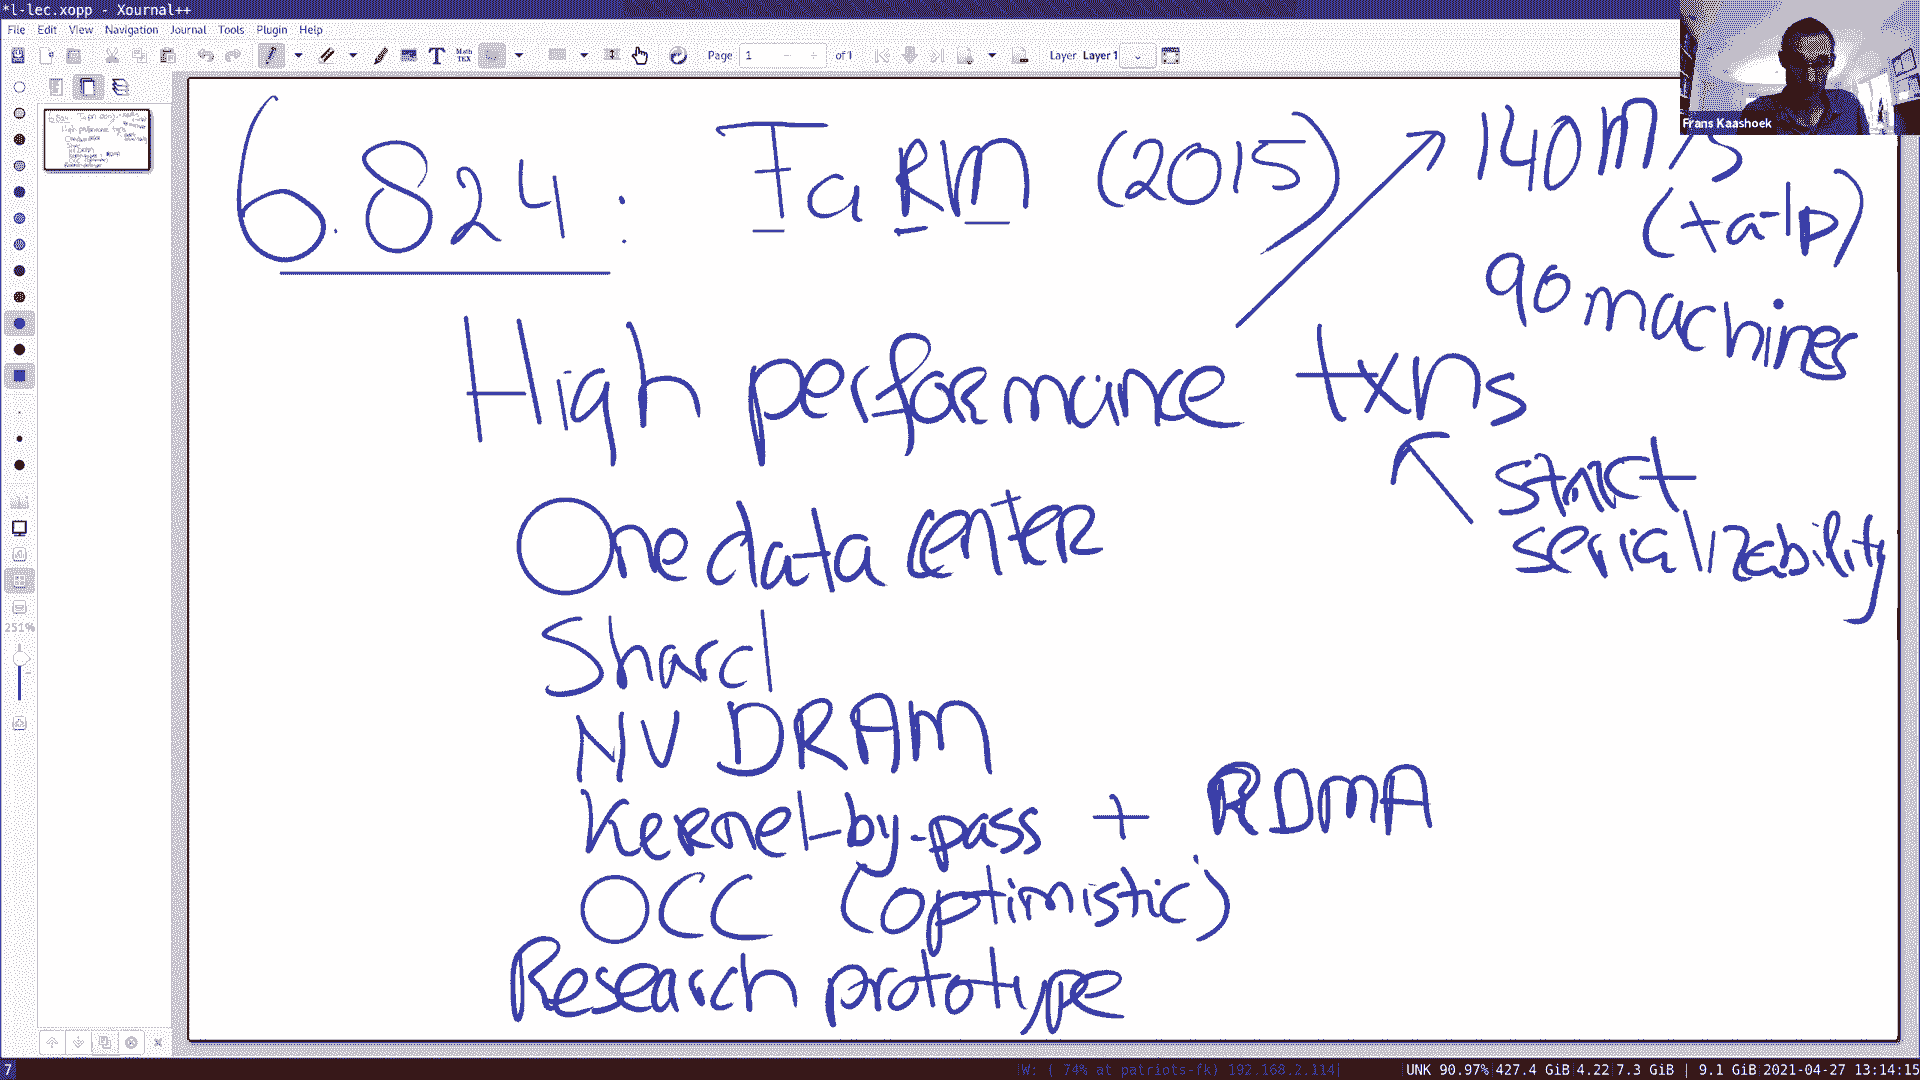 *l-lec.xopp - Xournal++
File Edit View Navigation Journal Tools Plugin Help
Page 1 of 1 Layer Layer 1
Frans Kaashoek
251%
6.824: FaRM (2015)
140 M/s
(tatp)
90 machines
High performance txns
strict
serializability
One data center
Shard
NV DRAM
Kernel-by-pass + RDMA
OCC (optimistic)
Research prototype
7
W: ( 74% at patriots-fk) 192.168.2.114| UNK 90.97%|427.4 GiB|4.22|7.3 GiB | 9.1 GiB 2021-04-27 13:14:15